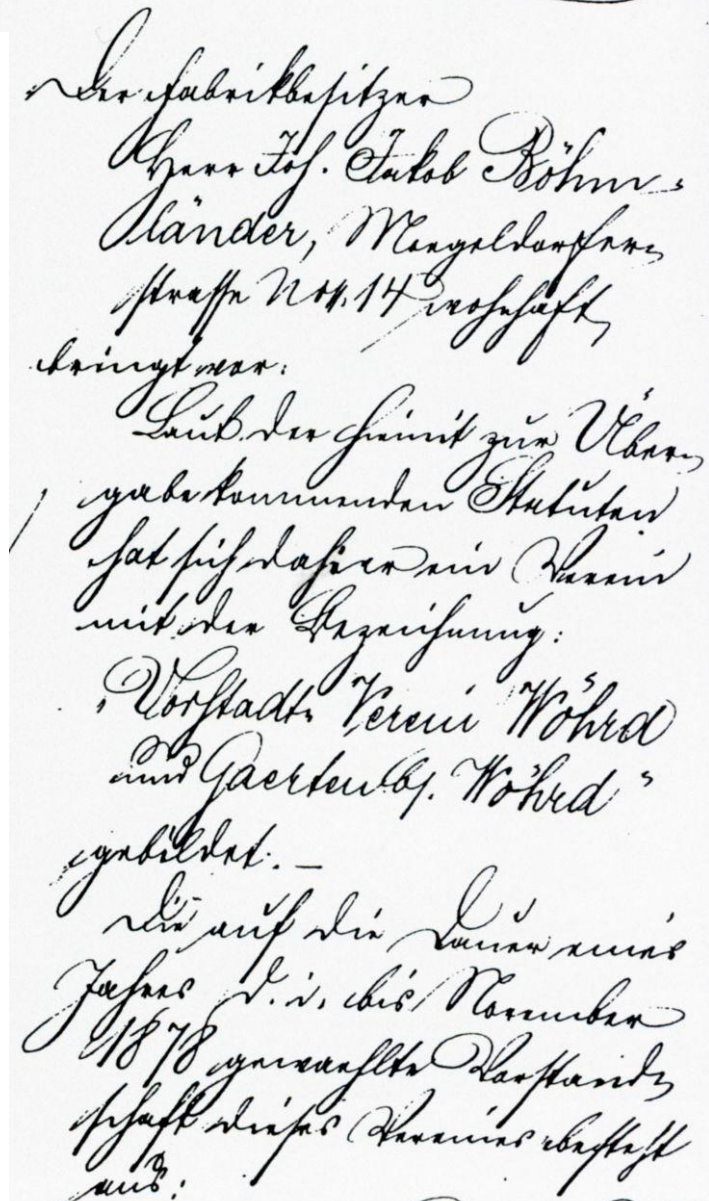 Der Fabrikbesitzer
Herr Joh. Jakob Böhm-
länder, Moegeldorfer-
strasse Nro. 14 wohnhaft
bringt vor:
Laut der hiemit zur Über-
gabe kommenden Statuten
hat sich dahier ein Verein
mit der Bezeichnung:
"Vorstadt-Verein Wöhrd
und Gaerten b/. Wöhrd"
gebildet. –
Die auf die Dauer eines
Jahres d. i. bis November
1878 gewaehlte Vorstand-
schaft dieses Vereines besteht
aus: